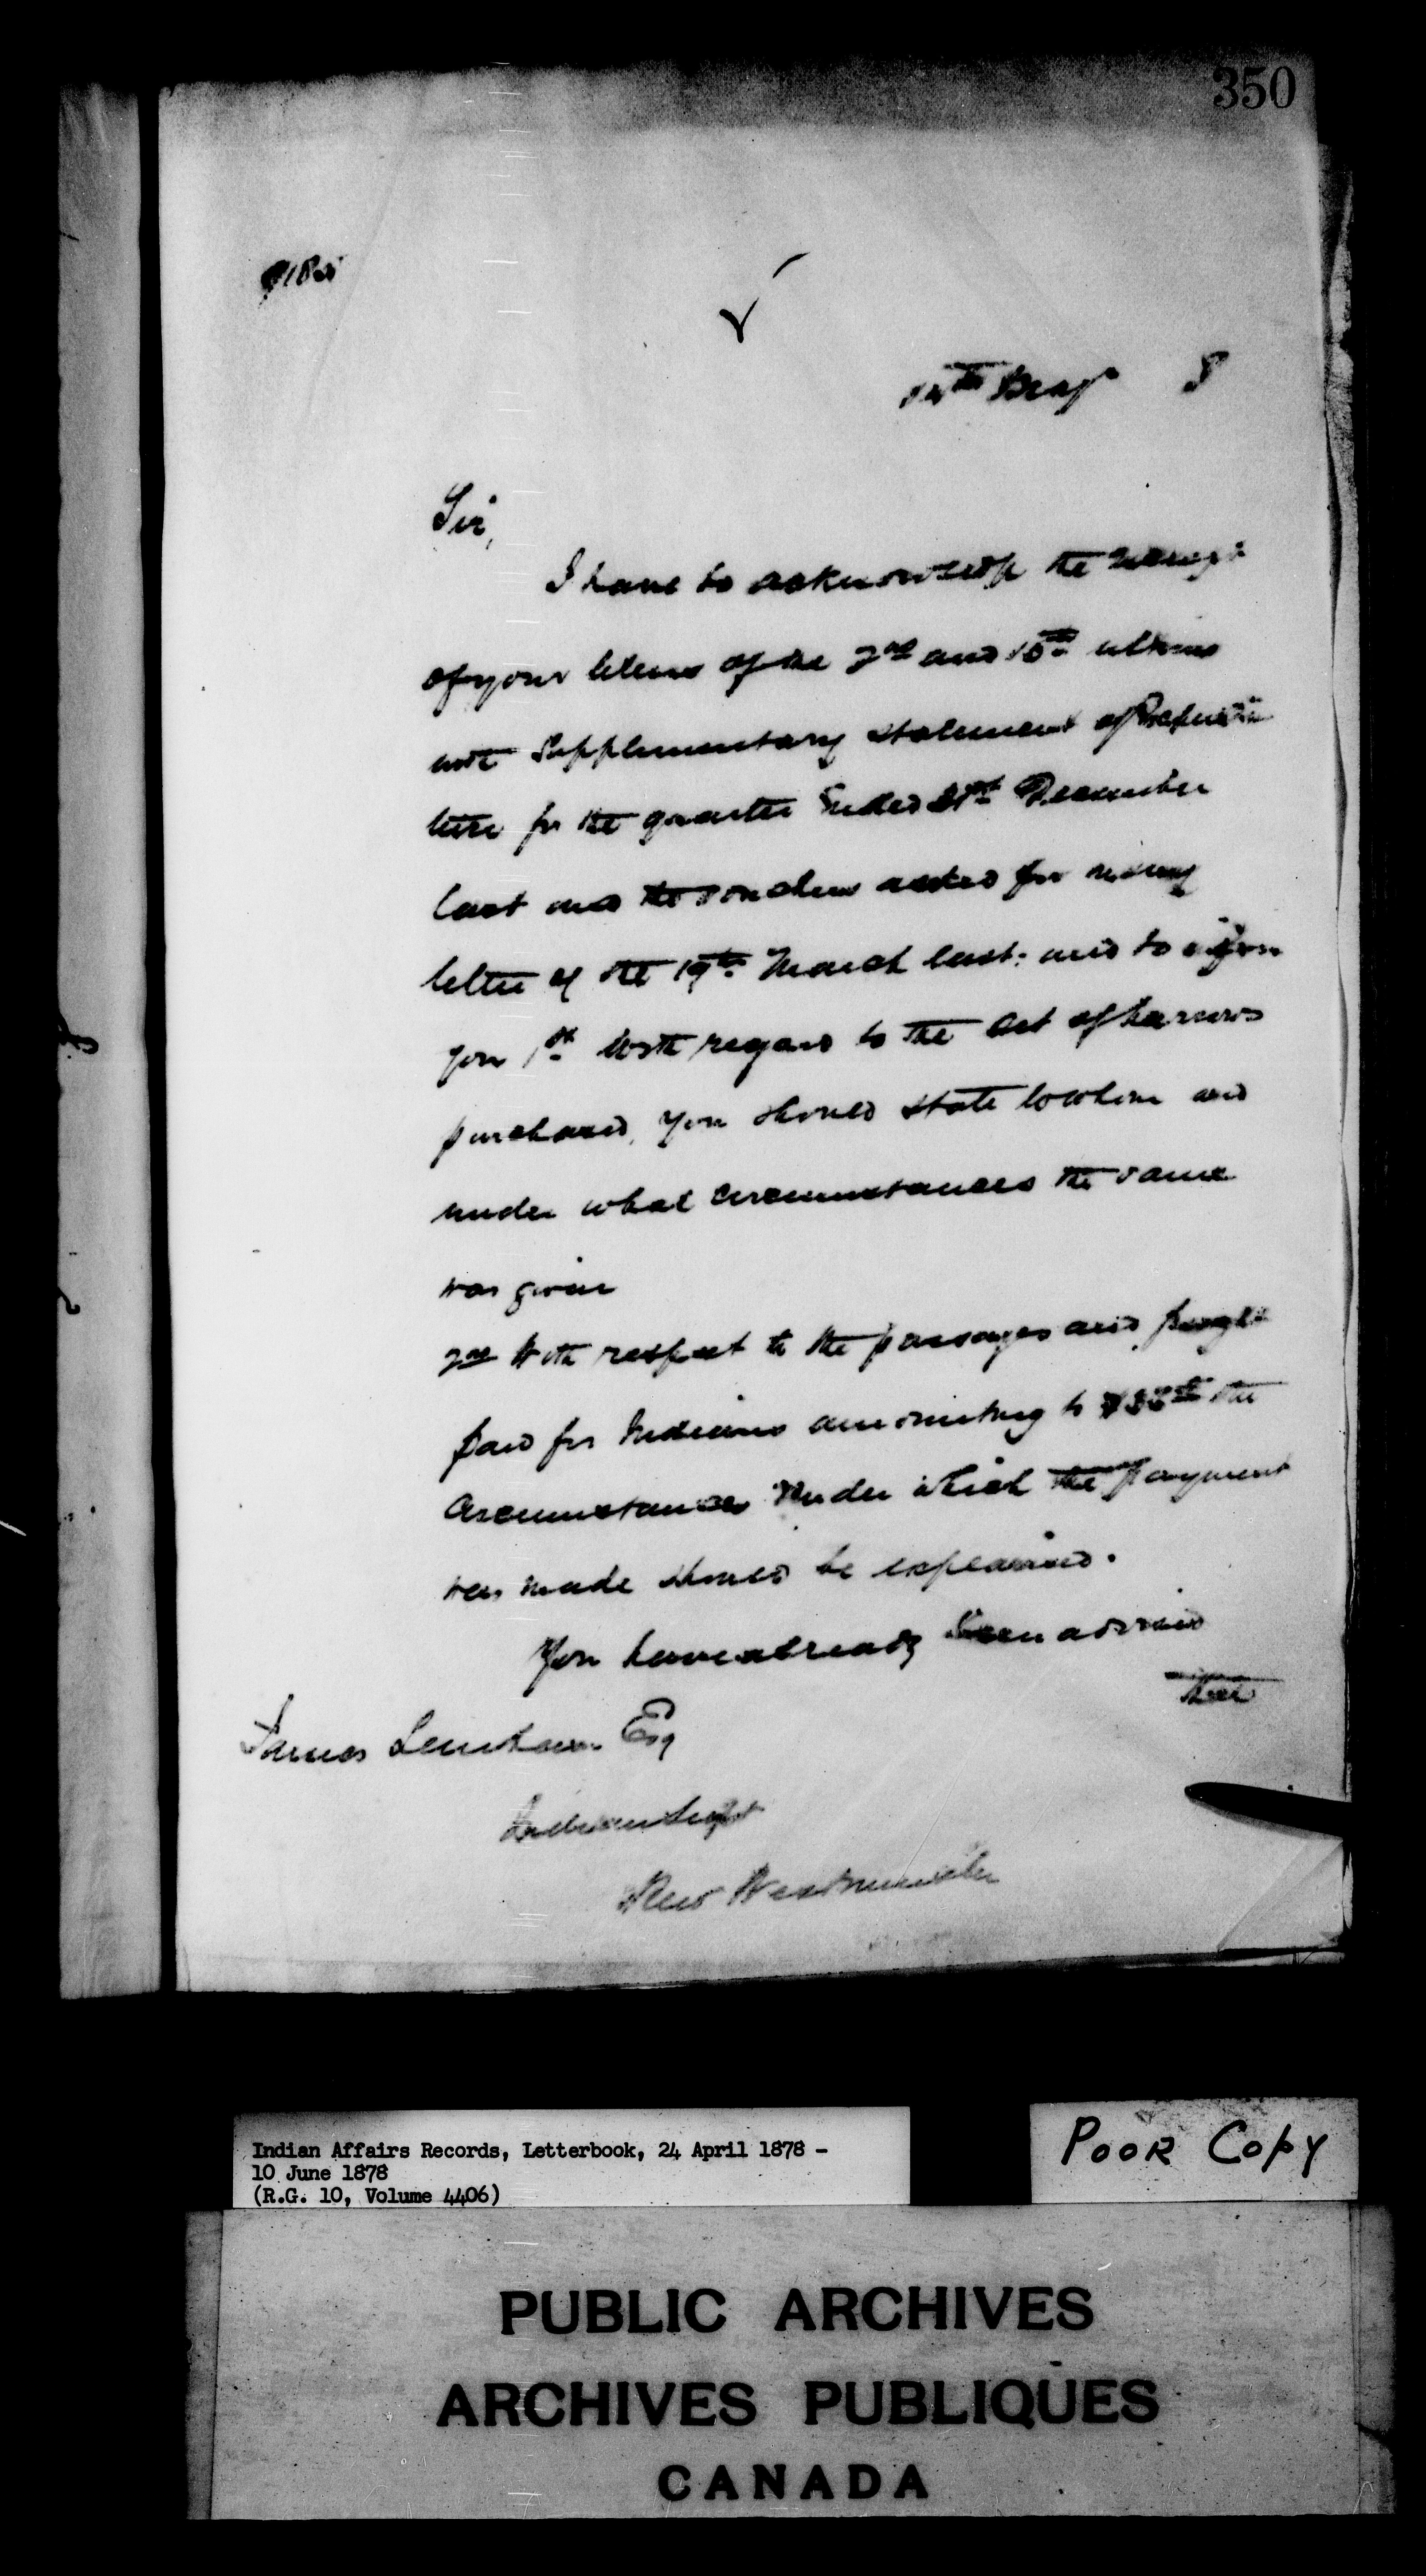 350
14th May 8
Sir,
I have to acknowledge the receipt
of your letters of the 2nd and 10th ultimo
with Supplementary Statement of Expendi
ture for the quarter Ended 31st December
last and the vouchers asked for in my
letter of the 19th March last; and to inform
you 1st With regard to the Set of harrows
purchased, you should state to whom and
under what circumstances the same
was given
2nd With respect to the passages and freight
paid for Indians amounting to the
Circumstances Under which the payment
was made should be explained.
You have already been advised
that
James Lenihan Esq
Indian Supt
New Westminster
Indian Affairs Records, Letterbook, 24 April 1878 -
10 June 1878
(R.G. 10, Volume 4406)
POOR COPY
PUBLIC ARCHIVES
ARCHIVES PUBLIQUES
CANADA